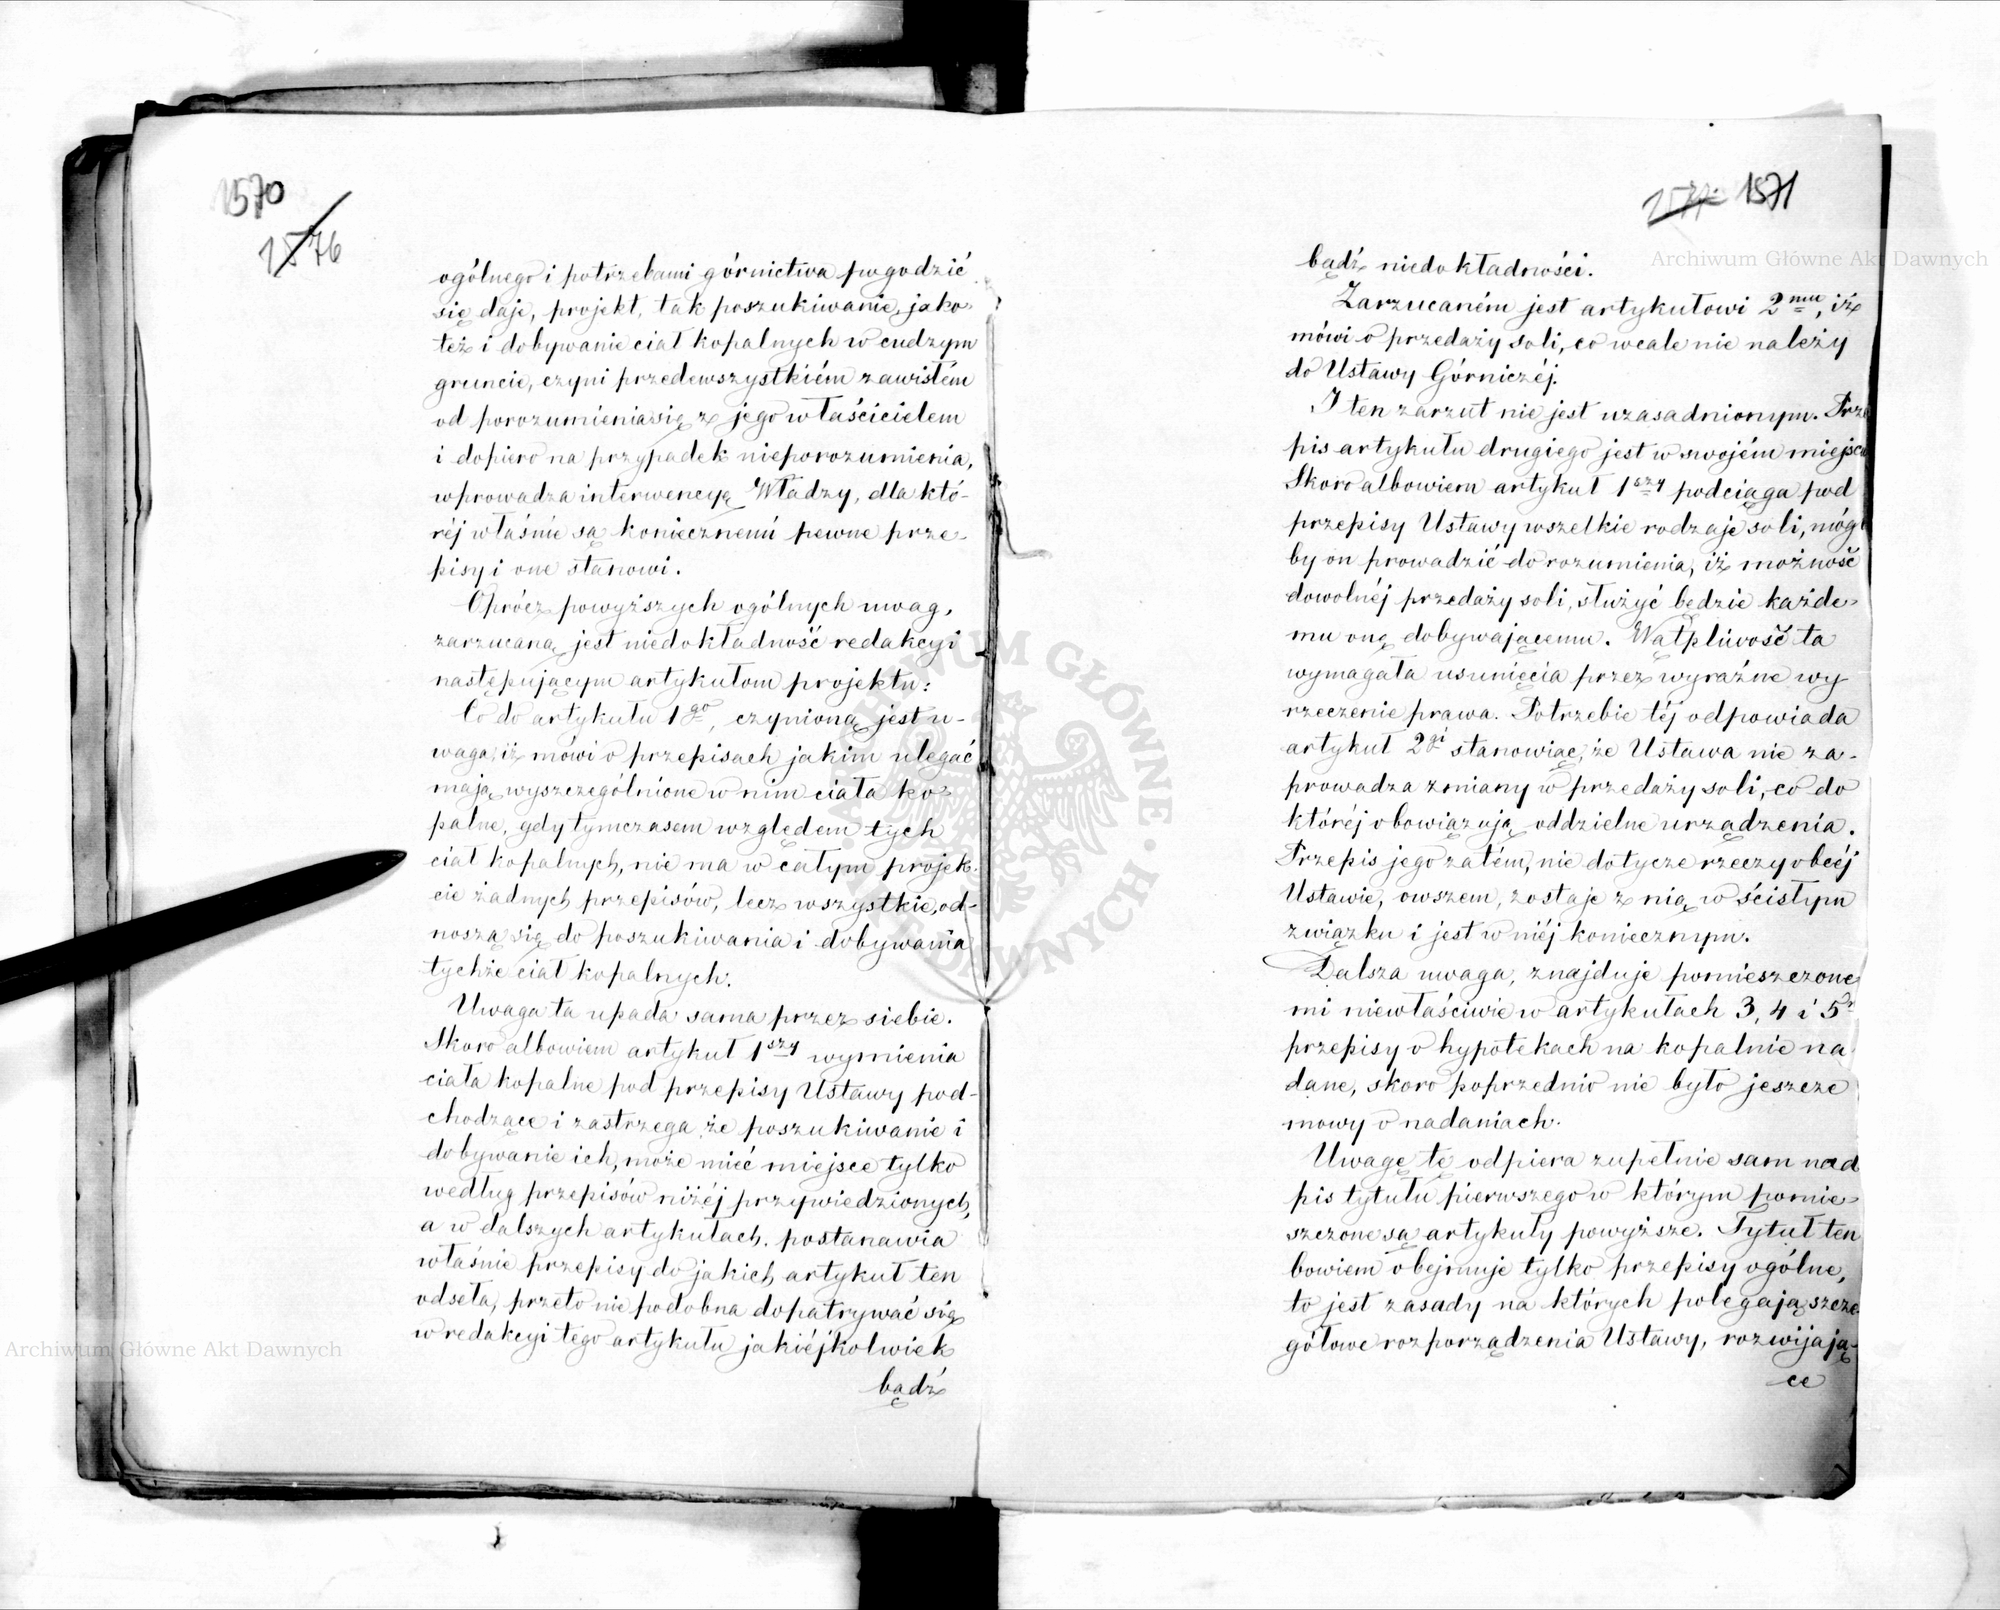 1570
1576
ogólnego i potrzebami górnictwa pogodzić
się daje, projekt, tak poszukiwanie, jako
też i dobywanie ciał kopalnych w cudzym
gruncie, czyni przedewszystkiém zawisłém
od porozumienia się z jego właścicielem
i dopiero na przypadek nieporozumienia,
wprowadza interwencyę Władzy, dla któ-
réj właśnie są koniecznemi pewne prze-
pisy i one stanowi.
Oprócz powyższych ogólnych uwag,
zarzucaną jest niedokładność redakcyi
następującym artykułom projektu:
Co do artykułu 1go, czynioną jest u-
waga, iż mówi o przepisach jakim ulegać
mają wyszczególnione w nim ciała ko-
palne, gdy tymczasem względem tych
ciał kopalnych, nie ma w całym projek-
cie żadnych przepisów, lecz wszystkie, od-
noszą się do poszukiwania i dobywania
tychże ciał kopalnych.
Uwaga ta upada sama przez siebie.
Skoro albowiem artykuł 1szy wymienia
ciała kopalne pod przepisy Ustawy pod-
chodzące i zastrzega że poszukiwanie i
dobywanie ich, może mieć miejsce tylko
według przepisów niżéj przywiedzionych,
a w dalszych artykułach, postanawia
właśnie przepisy do jakich artykuł ten
odseła, przeto nie podobna dopatrywać się
w redakcyi tego artykułu jakiéjkolwiek
bądź
1577 1571
bądź niedokładności.
Zarzucaném jest artykułowi 2mu, iż
mówi o przedaży soli, co wcale nie należy
do Ustawy Górniczéj.
I ten zarzut nie jest uzasadnionym. Prze
pis artykułu drugiego jest w swojém miejscu
Skoro albowiem artykuł 1szy podciąga pod
przepisy Ustawy wszelkie rodzaje soli, mógł
by on prowadzić do rozumienia, iż możność
dowolnéj przedaży soli, służyć będzie każde-
mu onę dobywającemu. Wątpliwość ta
wymagała usunięcia przez wyraźne wy
rzeczenie prawa. Potrzebie téj odpowiada
artykuł 2gi stanowiąc, że Ustawa nie za-
prowadza zmiany w przedaży soli, co do
któréj obowiązują oddzielne urządzenia.
Przepis jego zatém, nie dotycze rzeczy obcéj
Ustawie, owszem, zostaje z nią w ścisłym
związku i jest w niéj koniecznym.
Dalsza uwaga, znajduje pomieszczone
mi niewłaściwie w artykułach 3, 4 i 5
przepisy o hypotekach na kopalnie na
dane, skoro poprzednio nie było jeszcze
mowy o nadaniach.
Uwagę tę odpiera zupełnie sam nad
pis tytułu pierwszego w którym pomie-
szczone są artykuły powyższe. Tytuł ten
bowiem obejmuje tylko przepisy ogólne,
to jest zasady na których polegają szcze
gółowe rozporządzenia Ustawy, rozwijają-
ce
Archiwum Główne Akt Dawnych
Archiwum Główne Akt Dawnych
ARCHIWUM GŁÓWNE AKT DAWNYCH